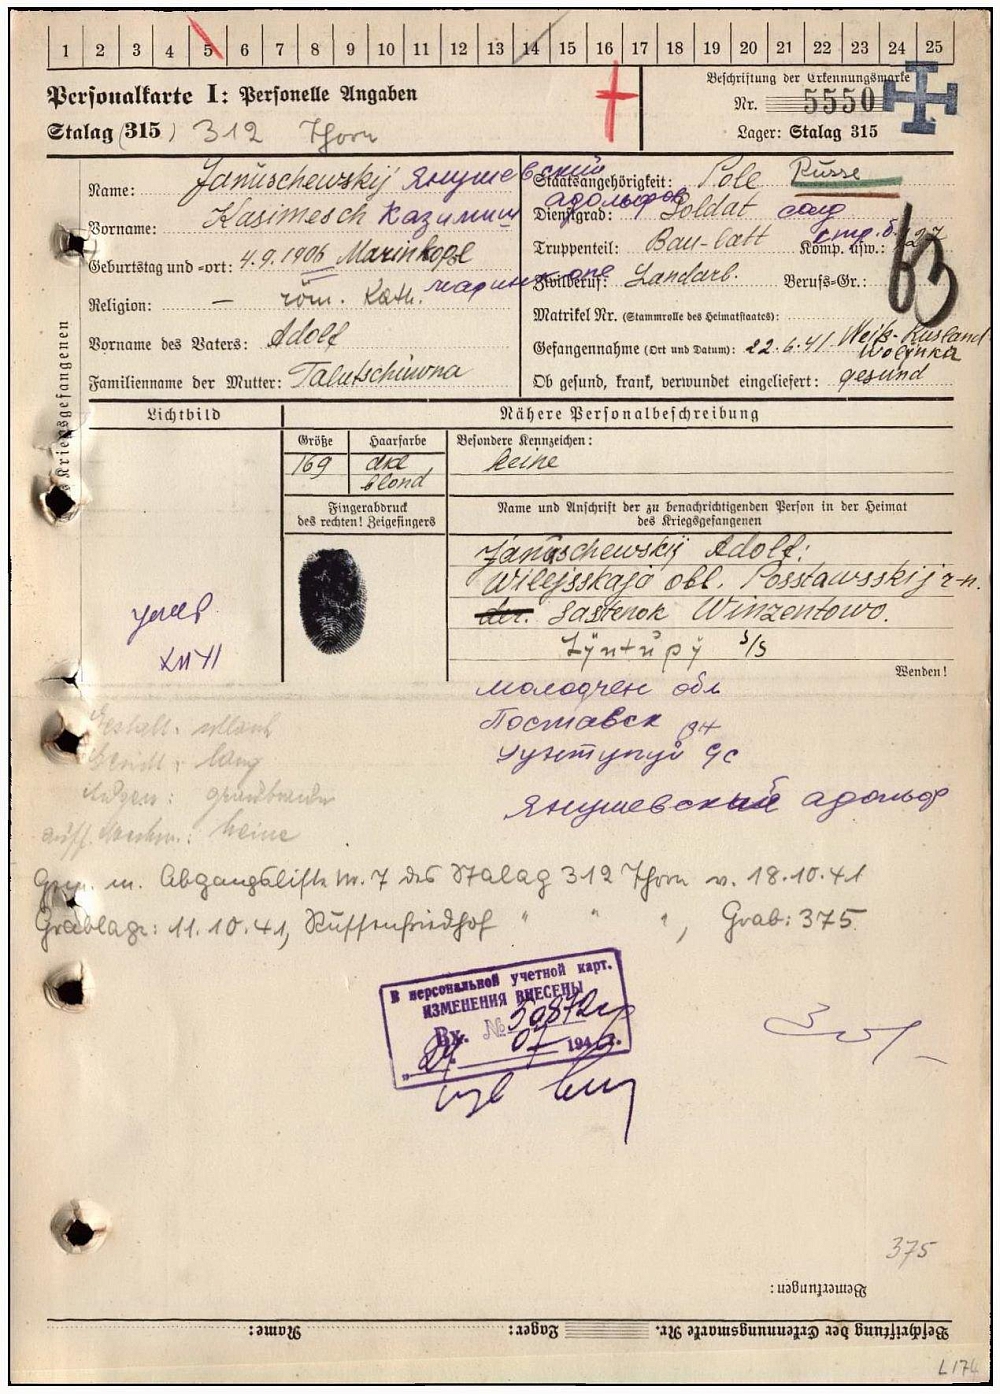 1 2 3 4 5 6 7 8 9 10 11 12 13 14 15 16 17 18 19 20 21 22 23 24 25
Personalkarte I: Personelle Angaben
Beschriftung der Erkennungsmarke
Nr. 5550
Stalag (315) 312 Thorn
Lager: Stalag 315
Name: Januschewskij Янушевский
Staatsangehörigkeit: Pole Russe
Vorname: Kasimesch Казимиш Адольфов
Dienstgrad: Soldat солд
Truppenteil: Bau-batt Komp. usw.: стр. б. 127
63
Geburtstag und -ort: 4.9.1906 Marinkope Маринкопе
Zivilberuf: Landarb. Berufs-Gr.:
Religion: — röm. Kath.
Matrikel Nr. (Stammrolle des Heimatstaates):
Vorname des Vaters: Adolf
Gefangennahme (Ort und Datum): 22.6.41 Weiß-Rusland Wolinka
Familienname der Mutter: Talutschiwna
Ob gesund, krank, verwundet eingeliefert: gesund
Kriegsgefangenen
Lichtbild
Nähere Personalbeschreibung
Größe Haarfarbe Besondere Kennzeichen:
169 dkl. blond keine
Fingerabdruck des rechten! Zeigefingers
Name und Anschrift der zu benachrichtigenden Person in der Heimat des Kriegsgefangenen
Januschewskij Adolf:
Wilejsskaja obl. Posstawsskij r-n.
Sastenok Winzentowo.
Lÿntupÿ s/s
умер
Wenden!
Молодчен обл
Поставск рн
Лунтупуй с/с
Янушевский Адольф
Gestalt: schlank
Gesicht: lang
Augen: graubraun
auff. Merkm.: keine
Gem. m. Abgangsliste Nr. 7 des Stalag 312 Thorn v. 18.10.41
Grablage: 11.10.41, Russenfriedhof " " ", Grab: 375
В персональной учетной карт.
ИЗМЕНЕНИЯ ВНЕСЕНЫ
Вх. № 30872
"24" 07 1946г.
375
Bemerkungen:
Beschriftung der Erkennungsmarke Nr. Lager: Name:
L174